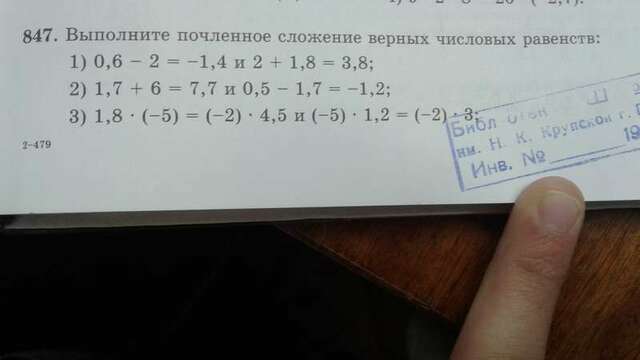 847. Выполните почленное сложение верных числовых равенств:
1) 0,6 − 2 = −1,4 и 2 + 1,8 = 3,8;
2) 1,7 + 6 = 7,7 и 0,5 − 1,7 = −1,2;
3) 1,8 · (−5) = (−2) · 4,5 и (−5) · 1,2 = (−2) · 3;
2–479
им. Н. К. Крупской г.
Инв. № 19